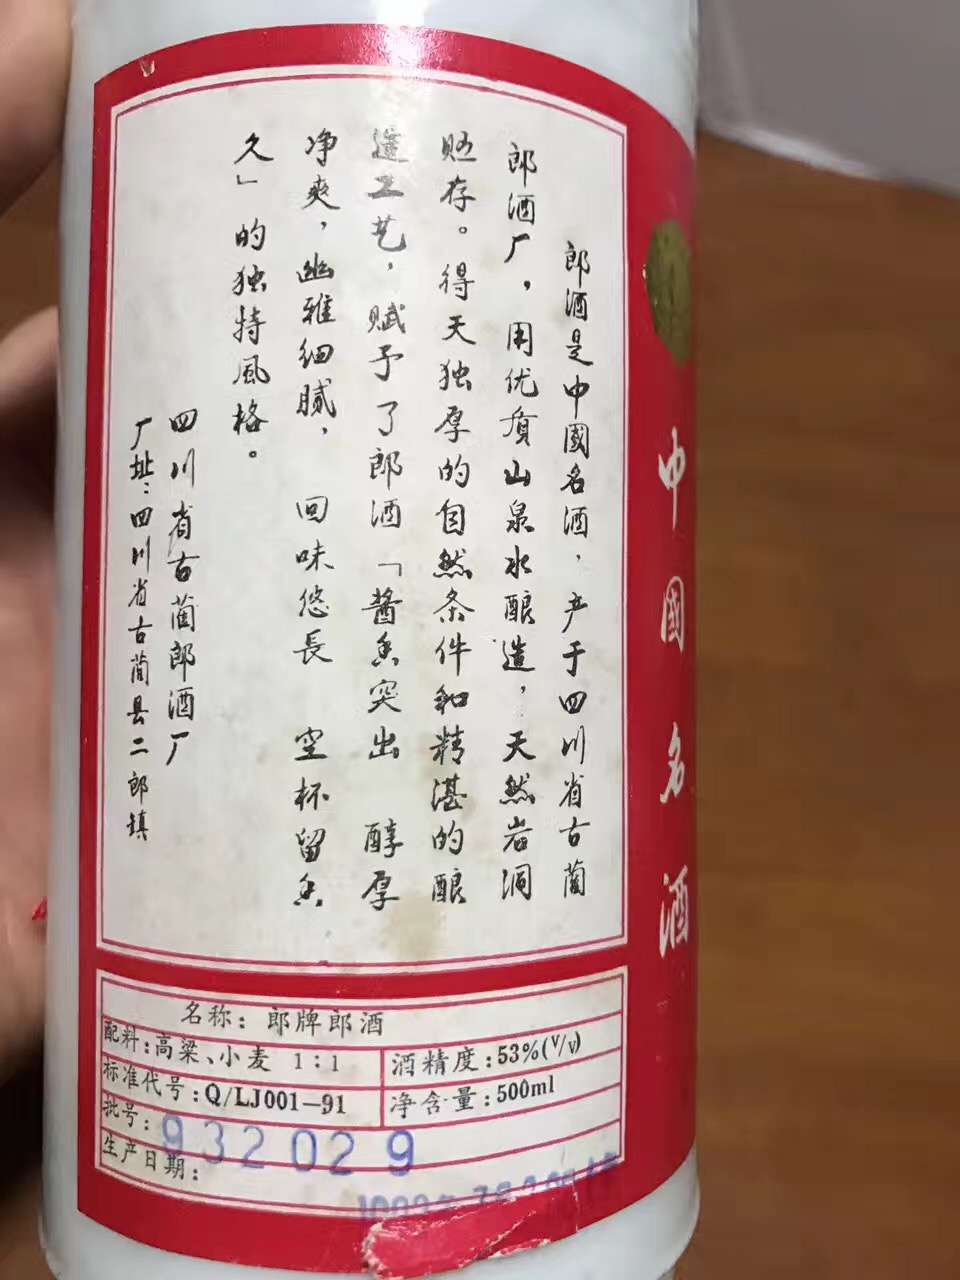 郎酒是中國名酒，产于四川省古蔺
郎酒厂，用优质山泉水酿造，天然岩洞
贮存。得天独厚的自然条件和精湛的酿
造工艺，赋予了郎酒「酱香突出 醇厚
净爽，幽雅细腻， 回味悠長 空杯留香
久」的独特風格。
四川省古蔺郎酒厂
厂址：四川省古蔺县二郎镇
中國名酒
名称：郎牌郎酒
配料：高粱、小麦 1:1
酒精度：53%(V/V)
标准代号：Q/LJ001-91
净含量：500ml
批号：932029
生产日期：